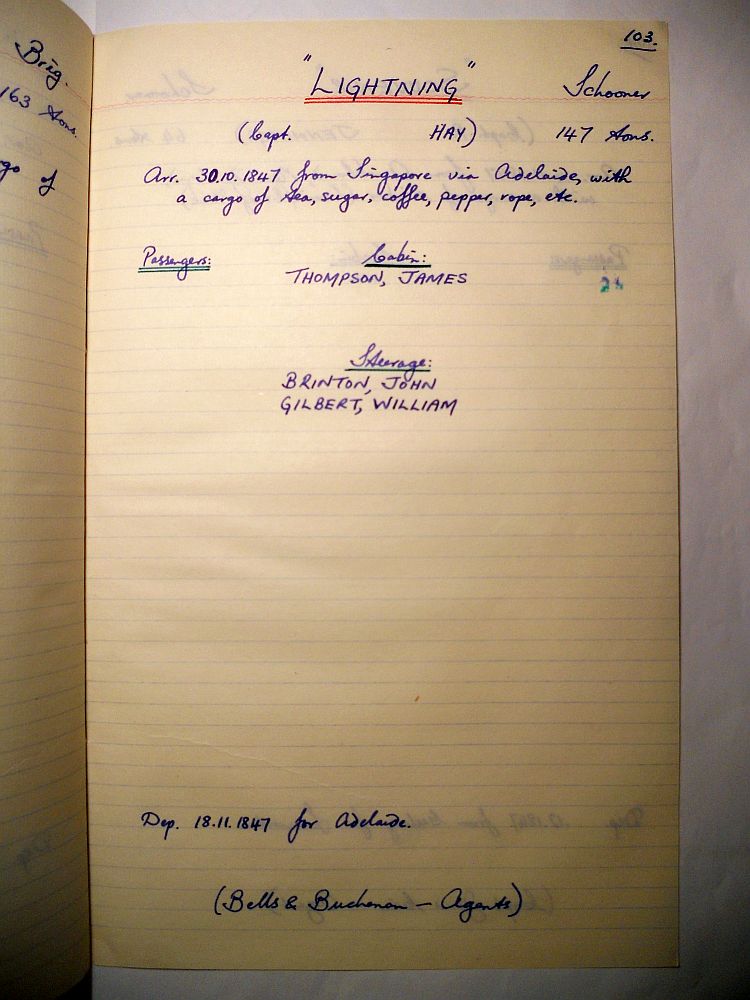 Brig.
163 tons.
go of
103.
"LIGHTNING" Schooner
(Capt. HAY) 147 tons.
Arr. 30.10.1847 from Singapore via Adelaide, with
a cargo of tea, sugar, coffee, pepper, rope, etc.
Passengers: Cabin:
THOMPSON, JAMES
Steerage:
BRINTON, JOHN
GILBERT, WILLIAM
Dep. 18.11.1847 for Adelaide.
(Bells & Buchanan — Agents)